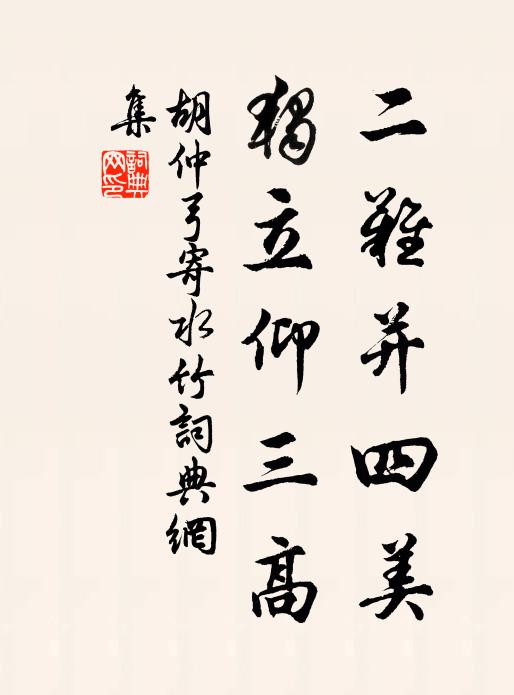 二難并四美
獨立仰三高
胡仲弓寄水竹詞典網
集
詞典网印